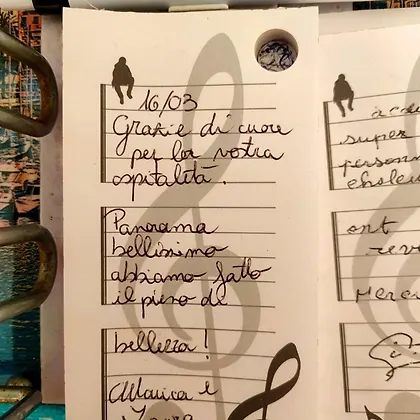 16/03
Grazie di cuore
per la vostra
ospitalità.
Panorama
bellissimo
abbiamo fatto
il pieno di
bellezza!
Marica e
super
person
ont
Merci